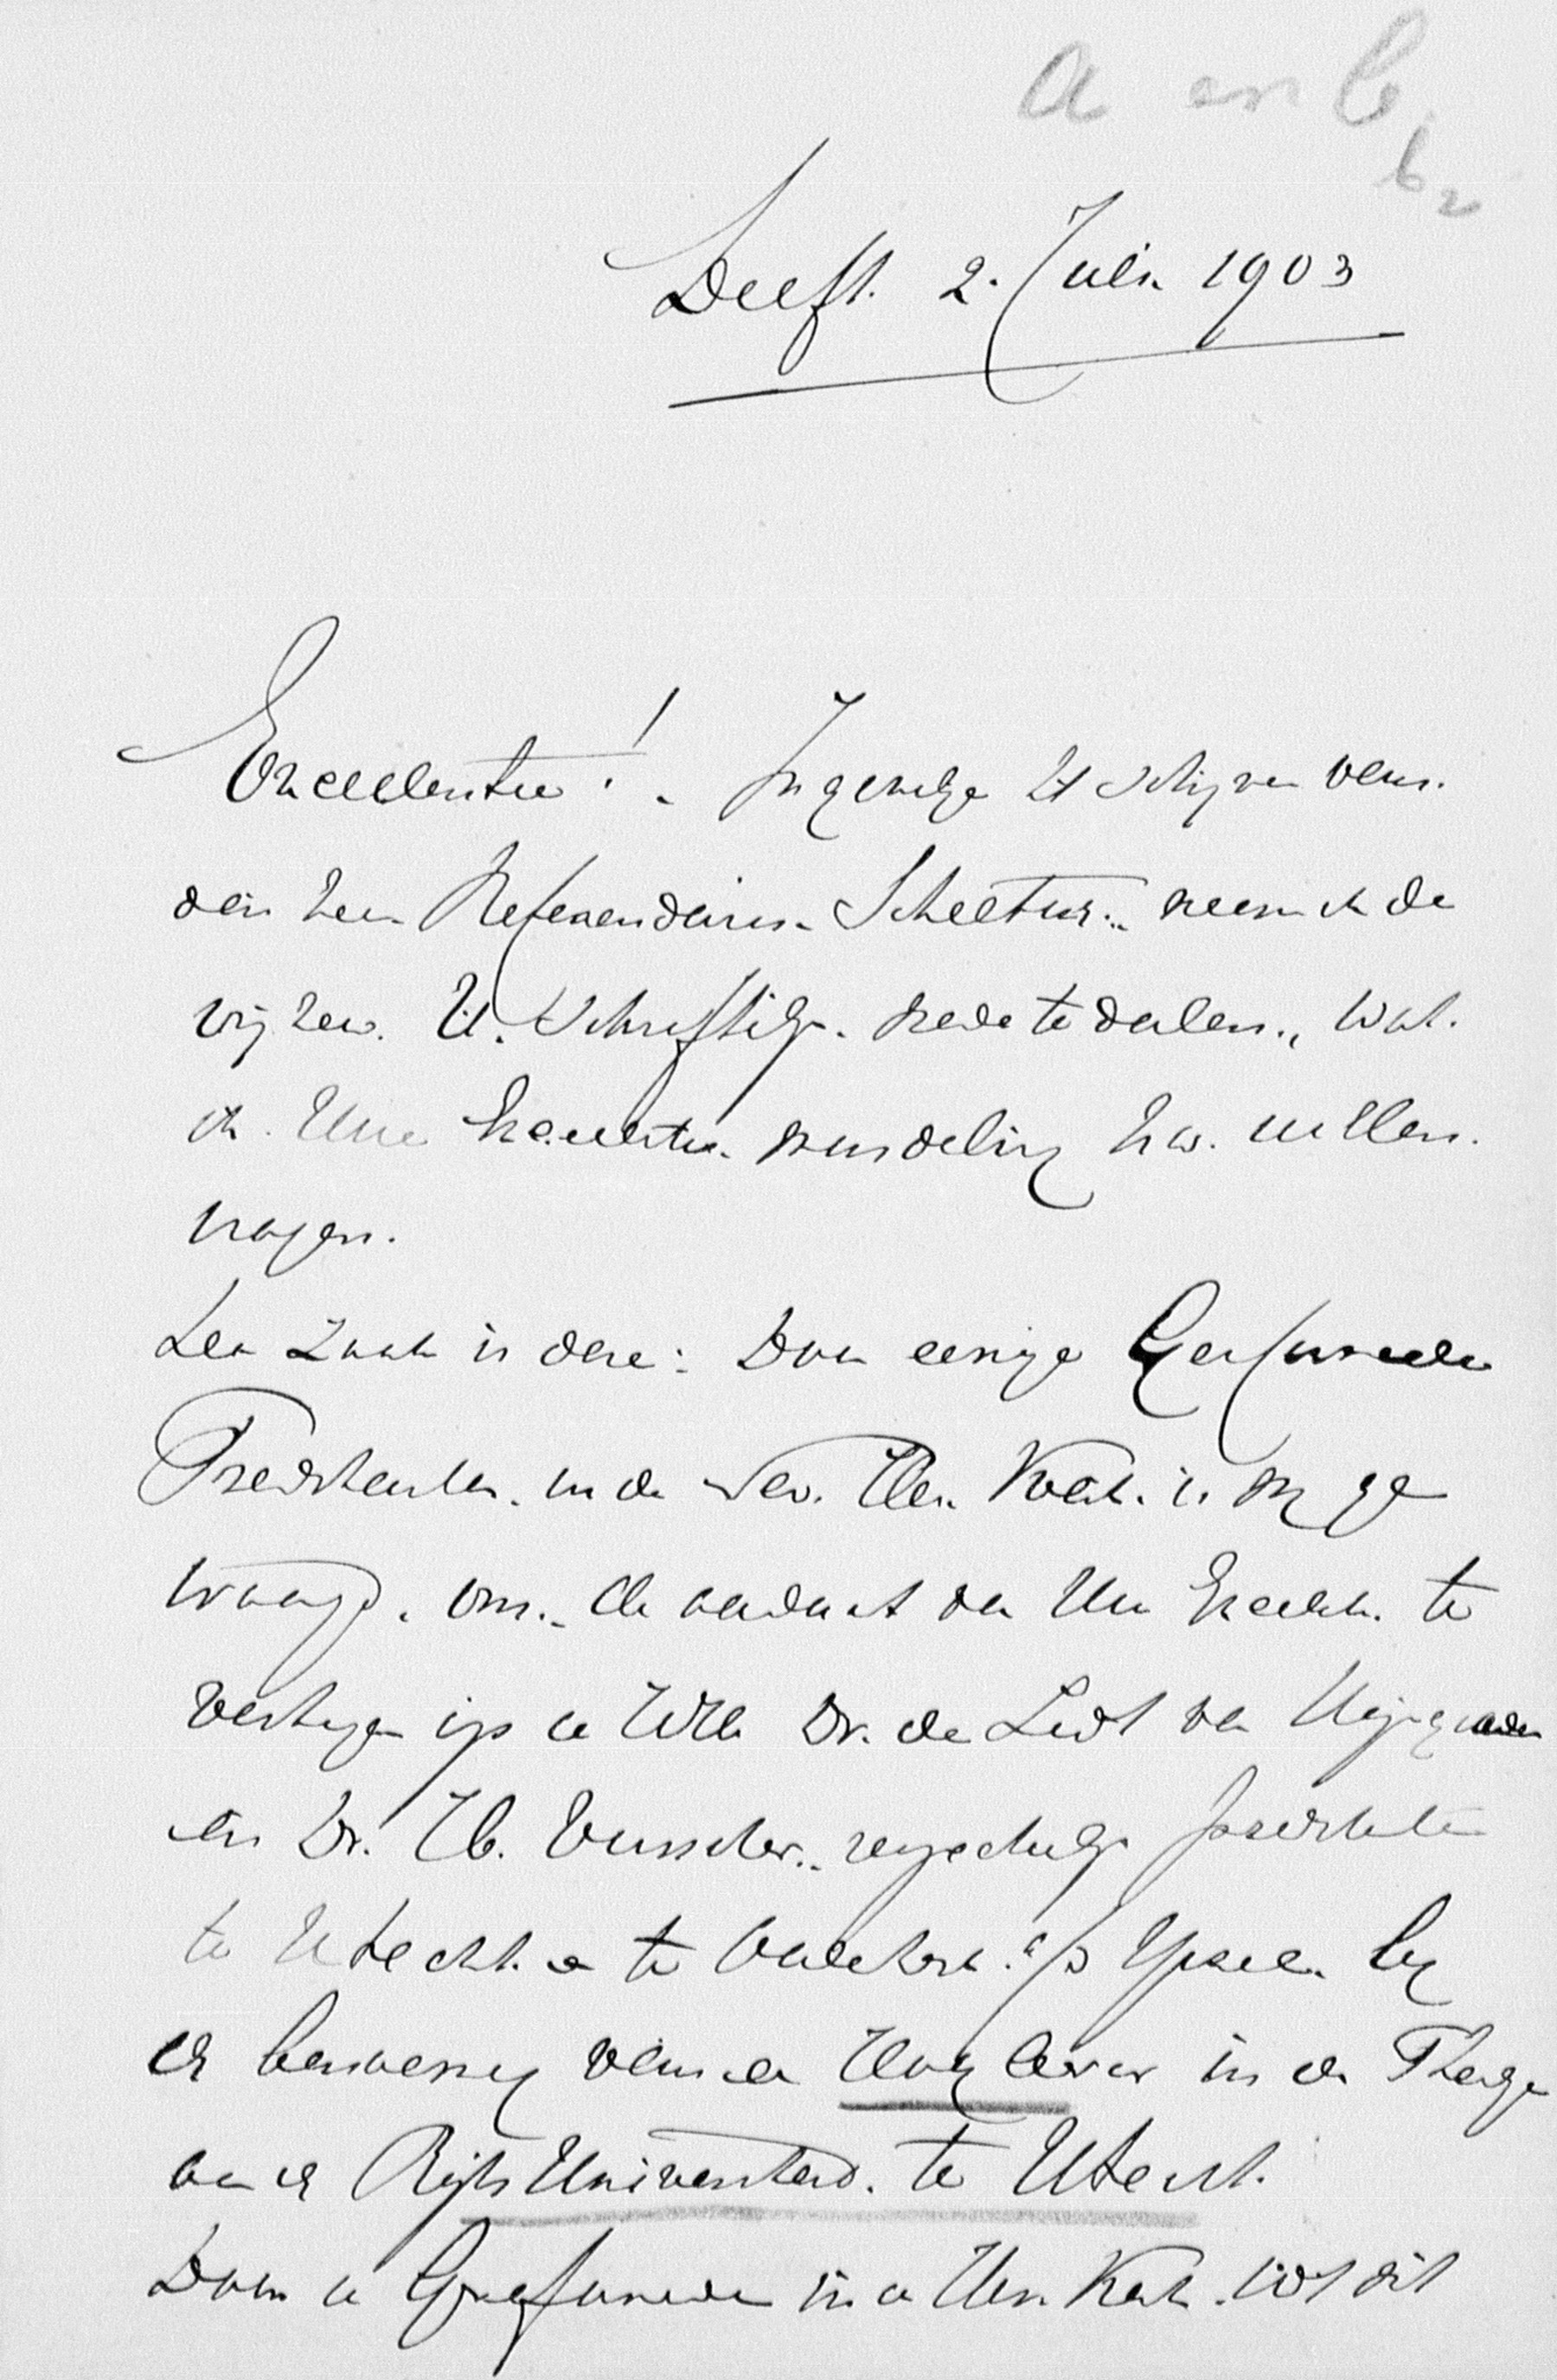 a en b
b2
Delft. 2. Juli. 1903
Excellentie! Ingevolge 't schrijven van
den heer Referendaris Scheltus neem ik de
vrijheid U. schriftelijk mede te deelen, wat
ik Uwe Excellentie mondeling had willen
vragen.
De zaak is deze: Door eenige Gereformeerde
Predikanten in de Ned. Herv. Kerk is mij ge
vraagd om de aandacht van Uwe Excell. te
vestigen op de WelE Dr. de Lind van Wijngaarden
en Dr. H. Visscher, respectievelijk predikanten
te Utrecht en te Ouderkerk a/d IJssel bij
de benoeming van een Hoogleeraar in de Theologie
aan de Rijks Universiteit te Utrecht.
Door de Gereformeerden in de Herv. Kerk wordt dit